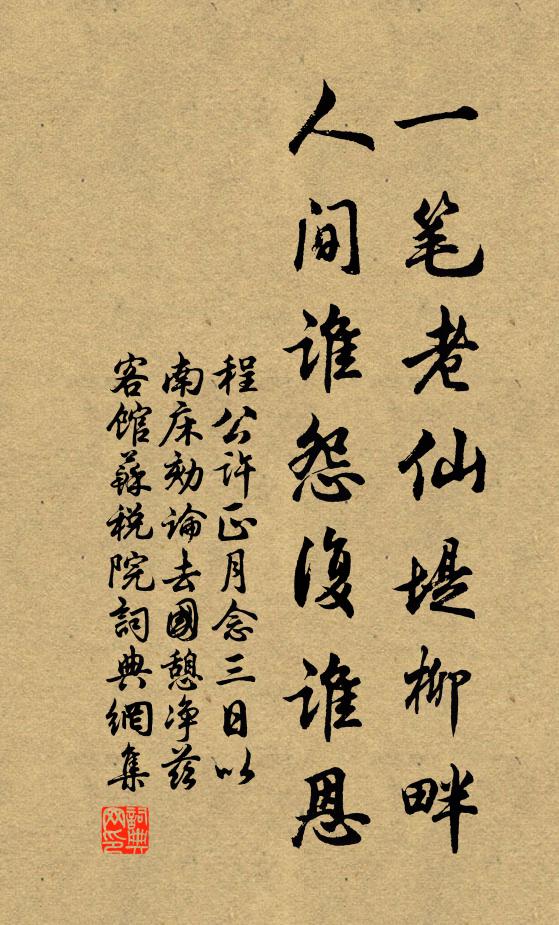 一笔老仙堤柳畔
人间谁怨复谁恩
程公许正月念三日以
南床劾論去國憩净慈
客館蘇税院詞典網集
詞典网印